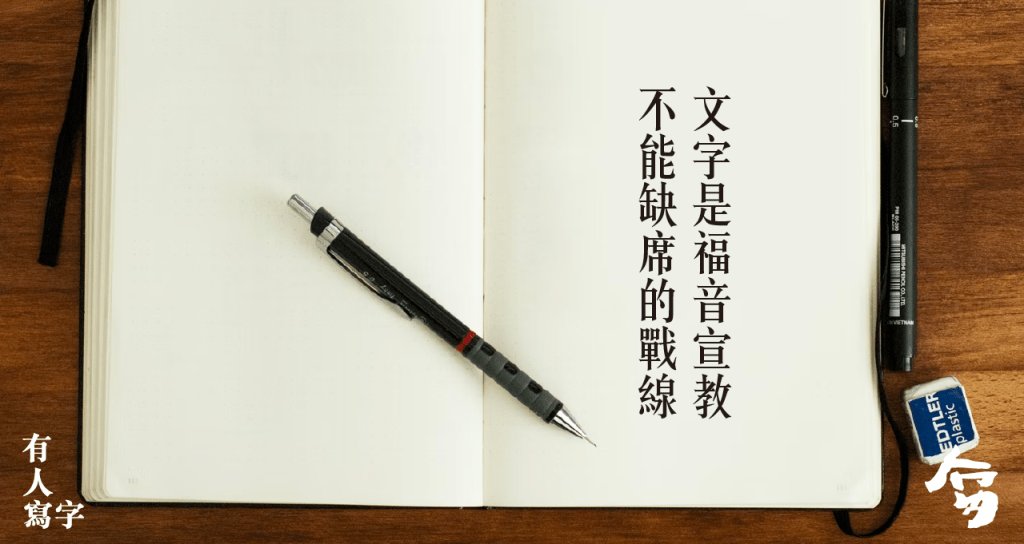 文字是福音宣教
不能缺席的戰線
有人
寫字
0.5
MITSUBISHI PENCIL CO., LTD.
VIETNAM
EDTLER
plastic